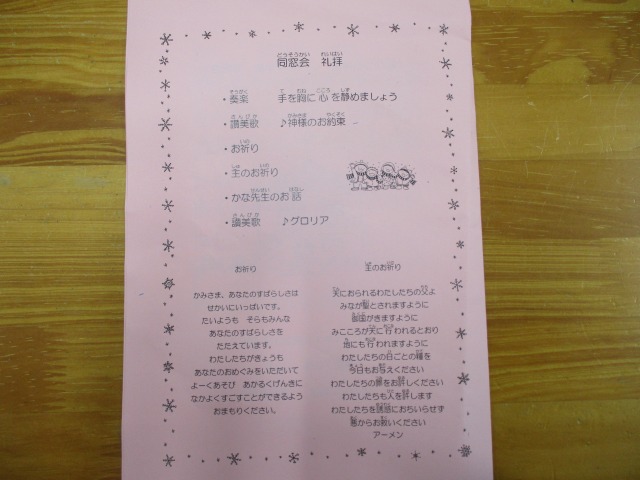 同窓会 礼拝
・奏楽 手を胸に 心を静めましょう
・讃美歌 ♪神様のお約束
・お祈り
・主のお祈り
・かな先生のお話
・讃美歌 ♪グロリア
お祈り
かみさま、あなたのすばらしさは
せかいにいっぱいです。
たいようも そらもみんな
あなたのすばらしさを
たたえています。
わたしたちがきょうも
あなたのおめぐみをいただいて
よーくあそび あかるくげんきに
なかよくすごすことができるよう
おまもりください。
主のお祈り
天におられるわたしたちの父よ
みなが聖とされますように
御国がきますように
みこころが天に行われるとおり
地にも行われますように
わたしたちの日ごとの糧を
今日もお与えください
わたしたちの罪をお許しください
わたしたちも人を許します
わたしたちを誘惑におちいらせず
悪からお救いください
アーメン